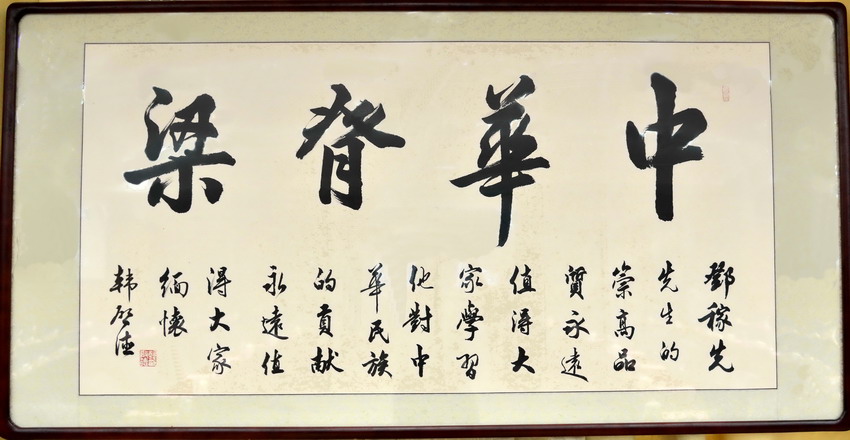 中華脊梁
鄧稼先
先生的
崇高品
質永遠
值得大
家學習
他對中
華民族
的貢献
永遠值
得大家
緬懷
韩启德